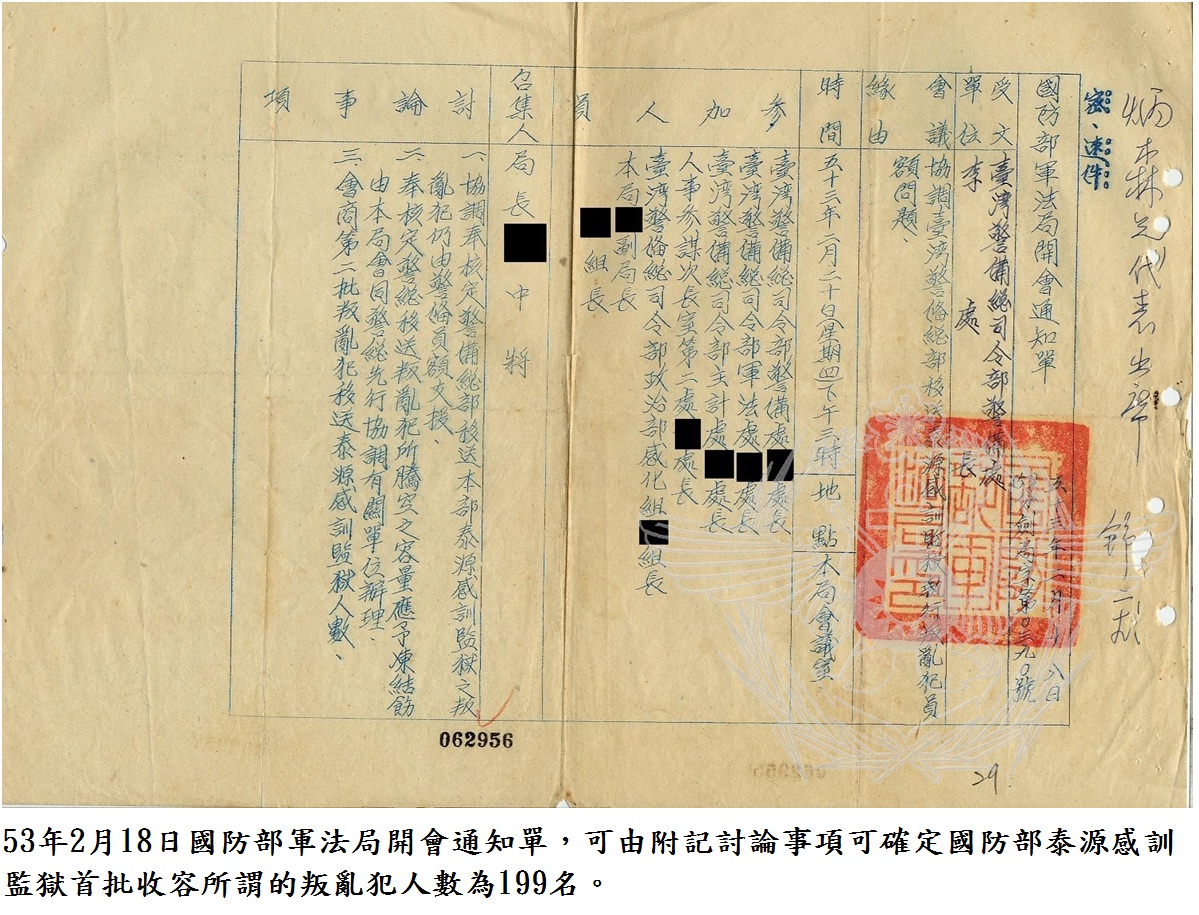 炳木林兄代表出席
密、速件
國防部軍法局開會通知單
五十三年二月十八日
字第〇三九〇號
受文單位
臺灣警備總司令部警備處
李處長
會議緣由
協調臺灣警備總部移送泰源感訓監獄執行叛亂犯員
額問題、
時間
五十三年二月二十日(星期四)下午三時
地點
本局會議室
參加人員
臺灣警備總司令部警備處 處長
臺灣警備總司令部軍法處 處長
臺灣警備總司令部主計處 處長
人事參謀次長室第二處 處長
臺灣警備總司令部政治部感化組 組長
本局 副局長
組長
召集人
局長 中將
討論事項
一、協調奉核定警備總部移送本部泰源感訓監獄之叛
亂犯仍由警備員額支援、
二、奉核定警總移送叛亂犯所騰空之容量應予凍結飭
由本局會同警總先行協調有關單位辦理、
三、會商第二批叛亂犯移送泰源感訓監獄人數、
062956
29
53年2月18日國防部軍法局開會通知單，可由附記討論事項可確定國防部泰源感訓
監獄首批收容所謂的叛亂犯人數為199名。